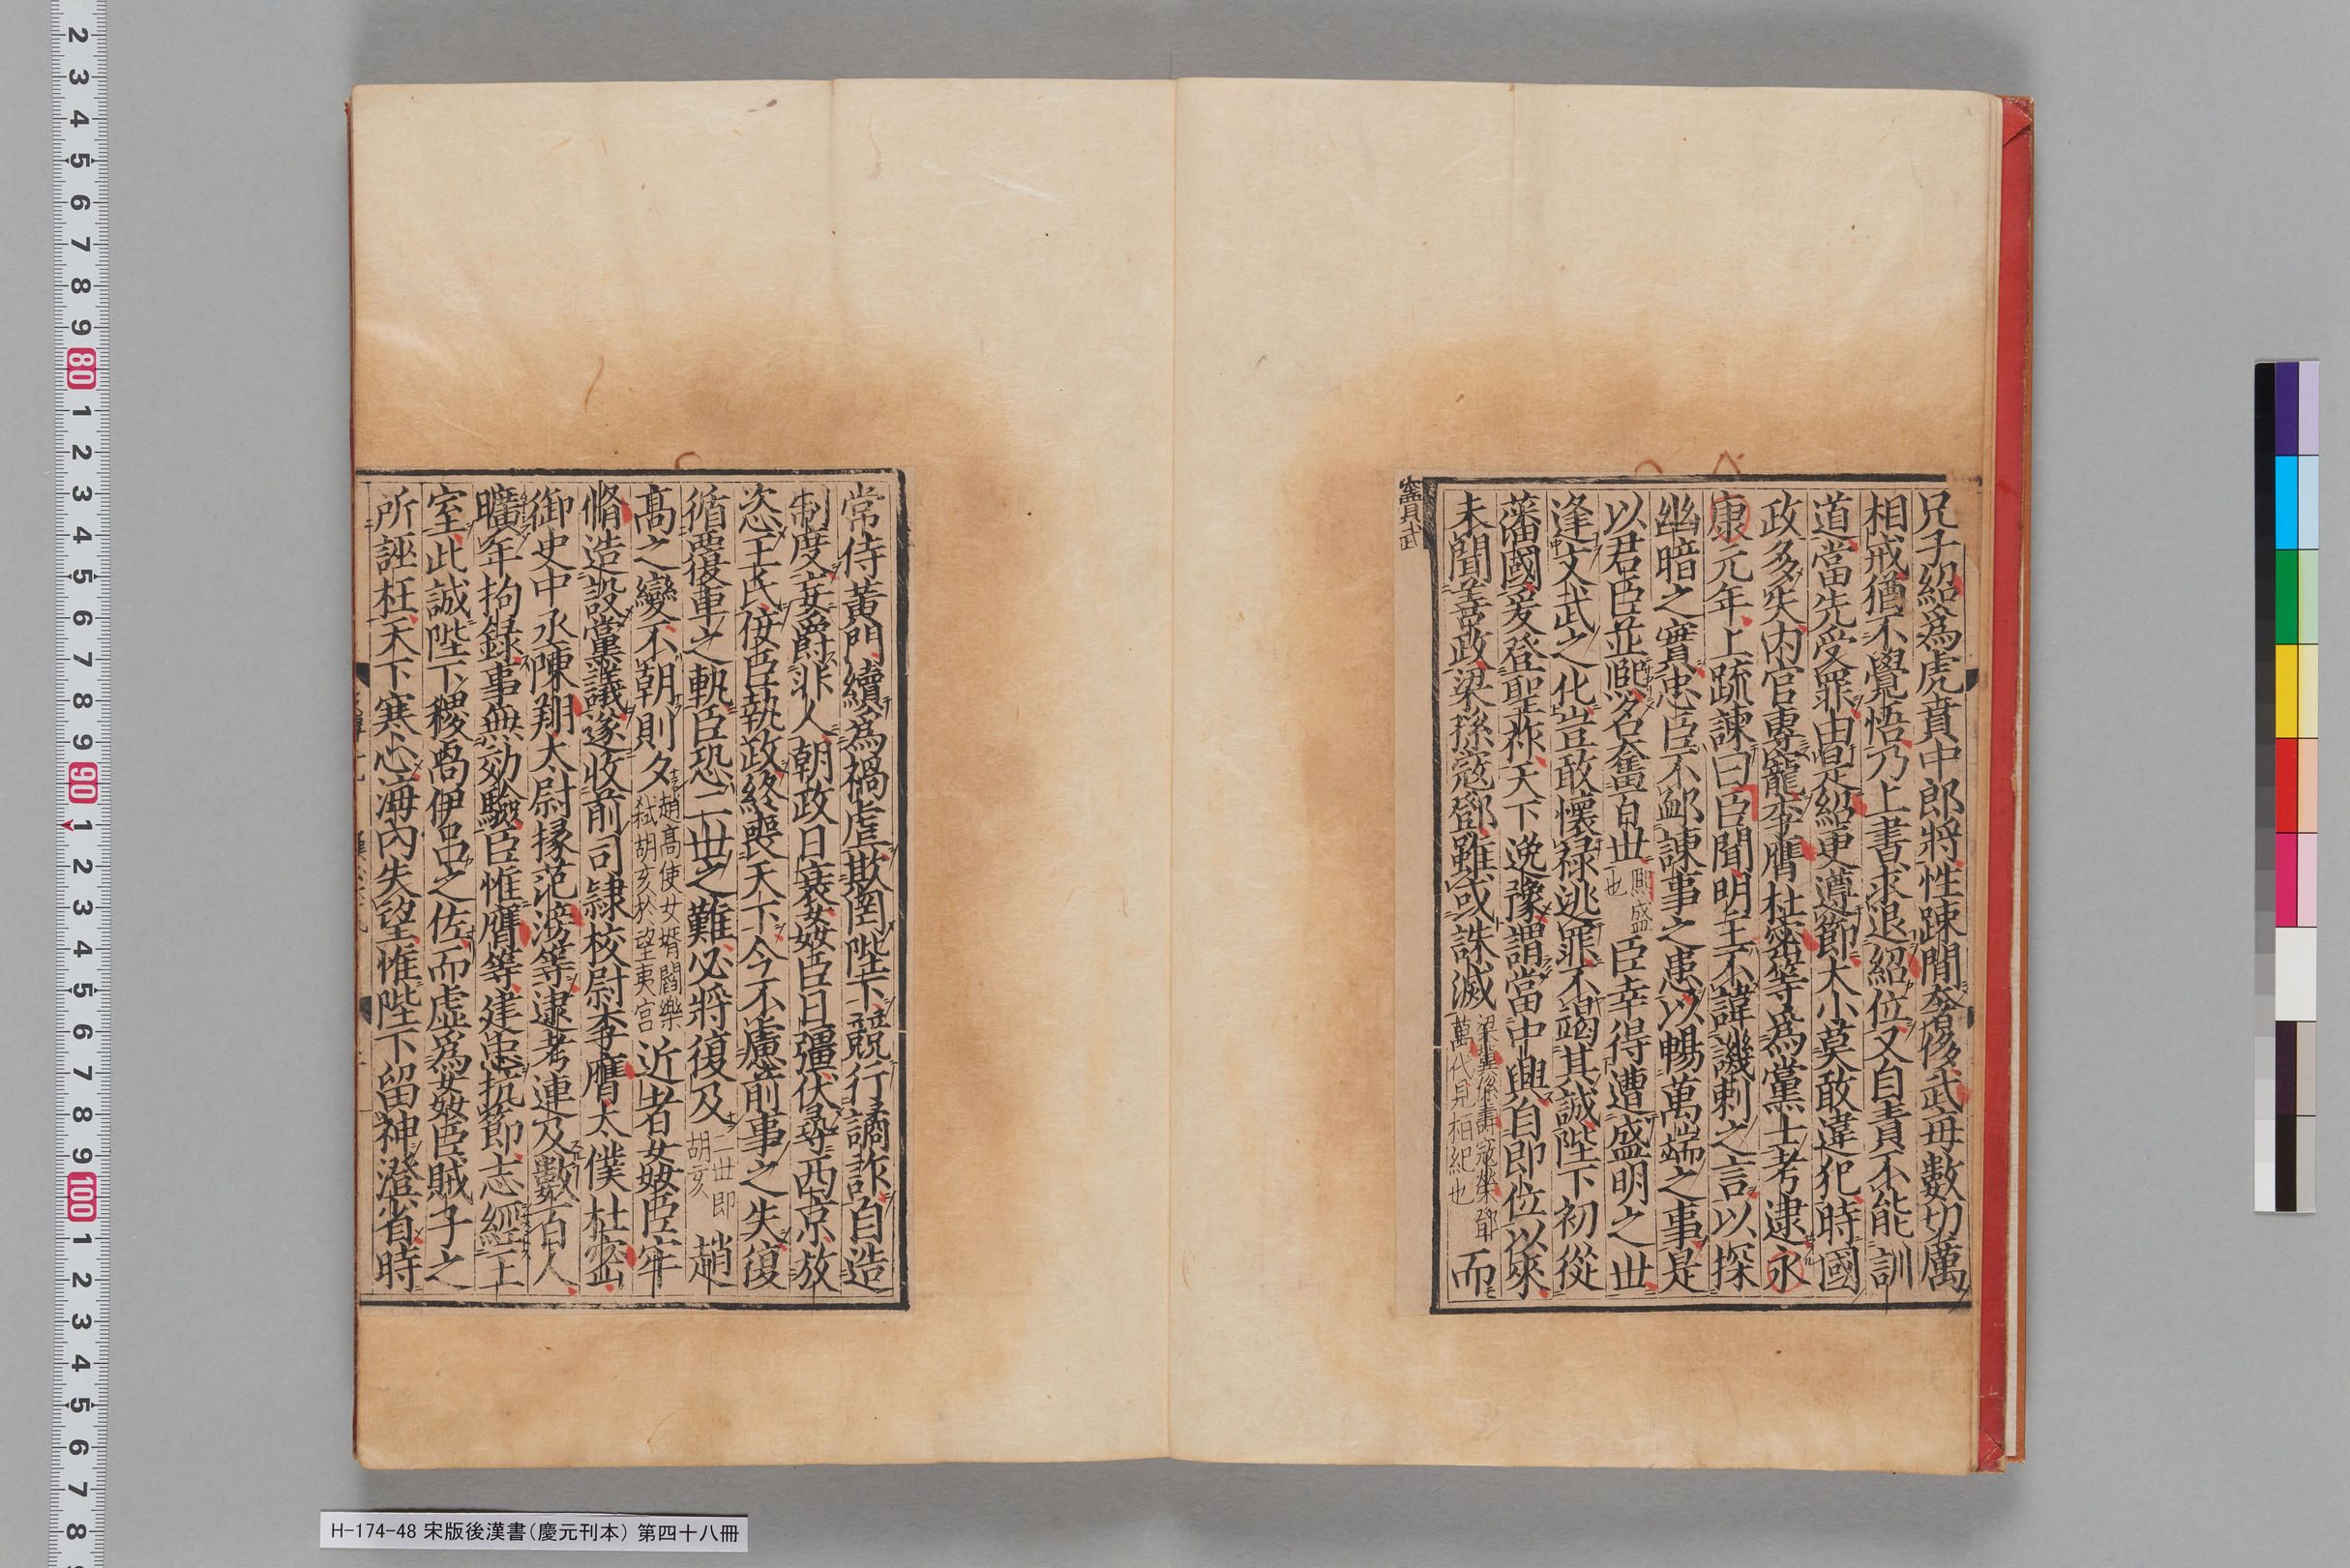 兄子紹爲虎賁中郎將性踈簡奢侈武每數切厲
相戒猶不覺悟乃上書求退紹位又自責不能訓
道當先受罪由是紹更遵節大小莫敢違犯時國
政多失内官專寵李膺杜密等爲黨士考逮永
康元年上疏諫曰臣聞明主不諱譏刺之言以探
幽暗之實忠臣不䘏諫事之患以暢萬端之事是
以君臣並熙名奮百世熙盛也臣幸得遭盛明之世
逢文武之化豈敢懷禄逃罪不竭其誠陛下初從
藩國爰登聖祚天下逸豫謂當中興自即位以來
未聞善政梁孫寇鄧雖或誅滅梁冀孫壽寇榮鄧萬代見桓紀也而
竇武
常侍黄門續爲禍虐欺罔陛下競行譎詐自造
制度妄爵非人朝政日衰姦臣日彊伏尋西京放
恣王氏佞臣執政終喪天下今不慮前事之失復
循覆車之軌臣恐二世之難必將復及二世即胡亥趙
高之變不朝則夕趙高使女壻閻樂弒胡亥於望夷宫近者姦臣牢
脩造設黨議遂收前司隷校尉李膺太僕杜密
御史中丞陳翔太尉掾范滂等逮考連及數百人
曠年拘錄事無効驗臣惟膺等建忠抗節志經王
室此誠陛下稷卨伊吕之佐而虚爲姦臣賊子之
所誣枉天下寒心海内失望惟陛下留神澄省時
H-174-48 宋版後漢書(慶元刊本) 第四十八冊
2 3 4 5 6 7 8 9 80 1 2 3 4 5 6 7 8 9 90 1 2 3 4 5 6 7 8 9 100 1 2 3 4 5 6 7 8